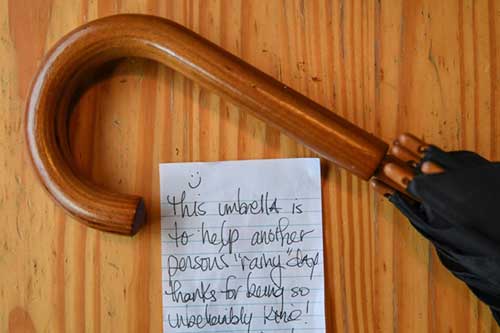 This umbrella is
to help another
persons "rainy" day
thanks for being so
unbelievably kind!